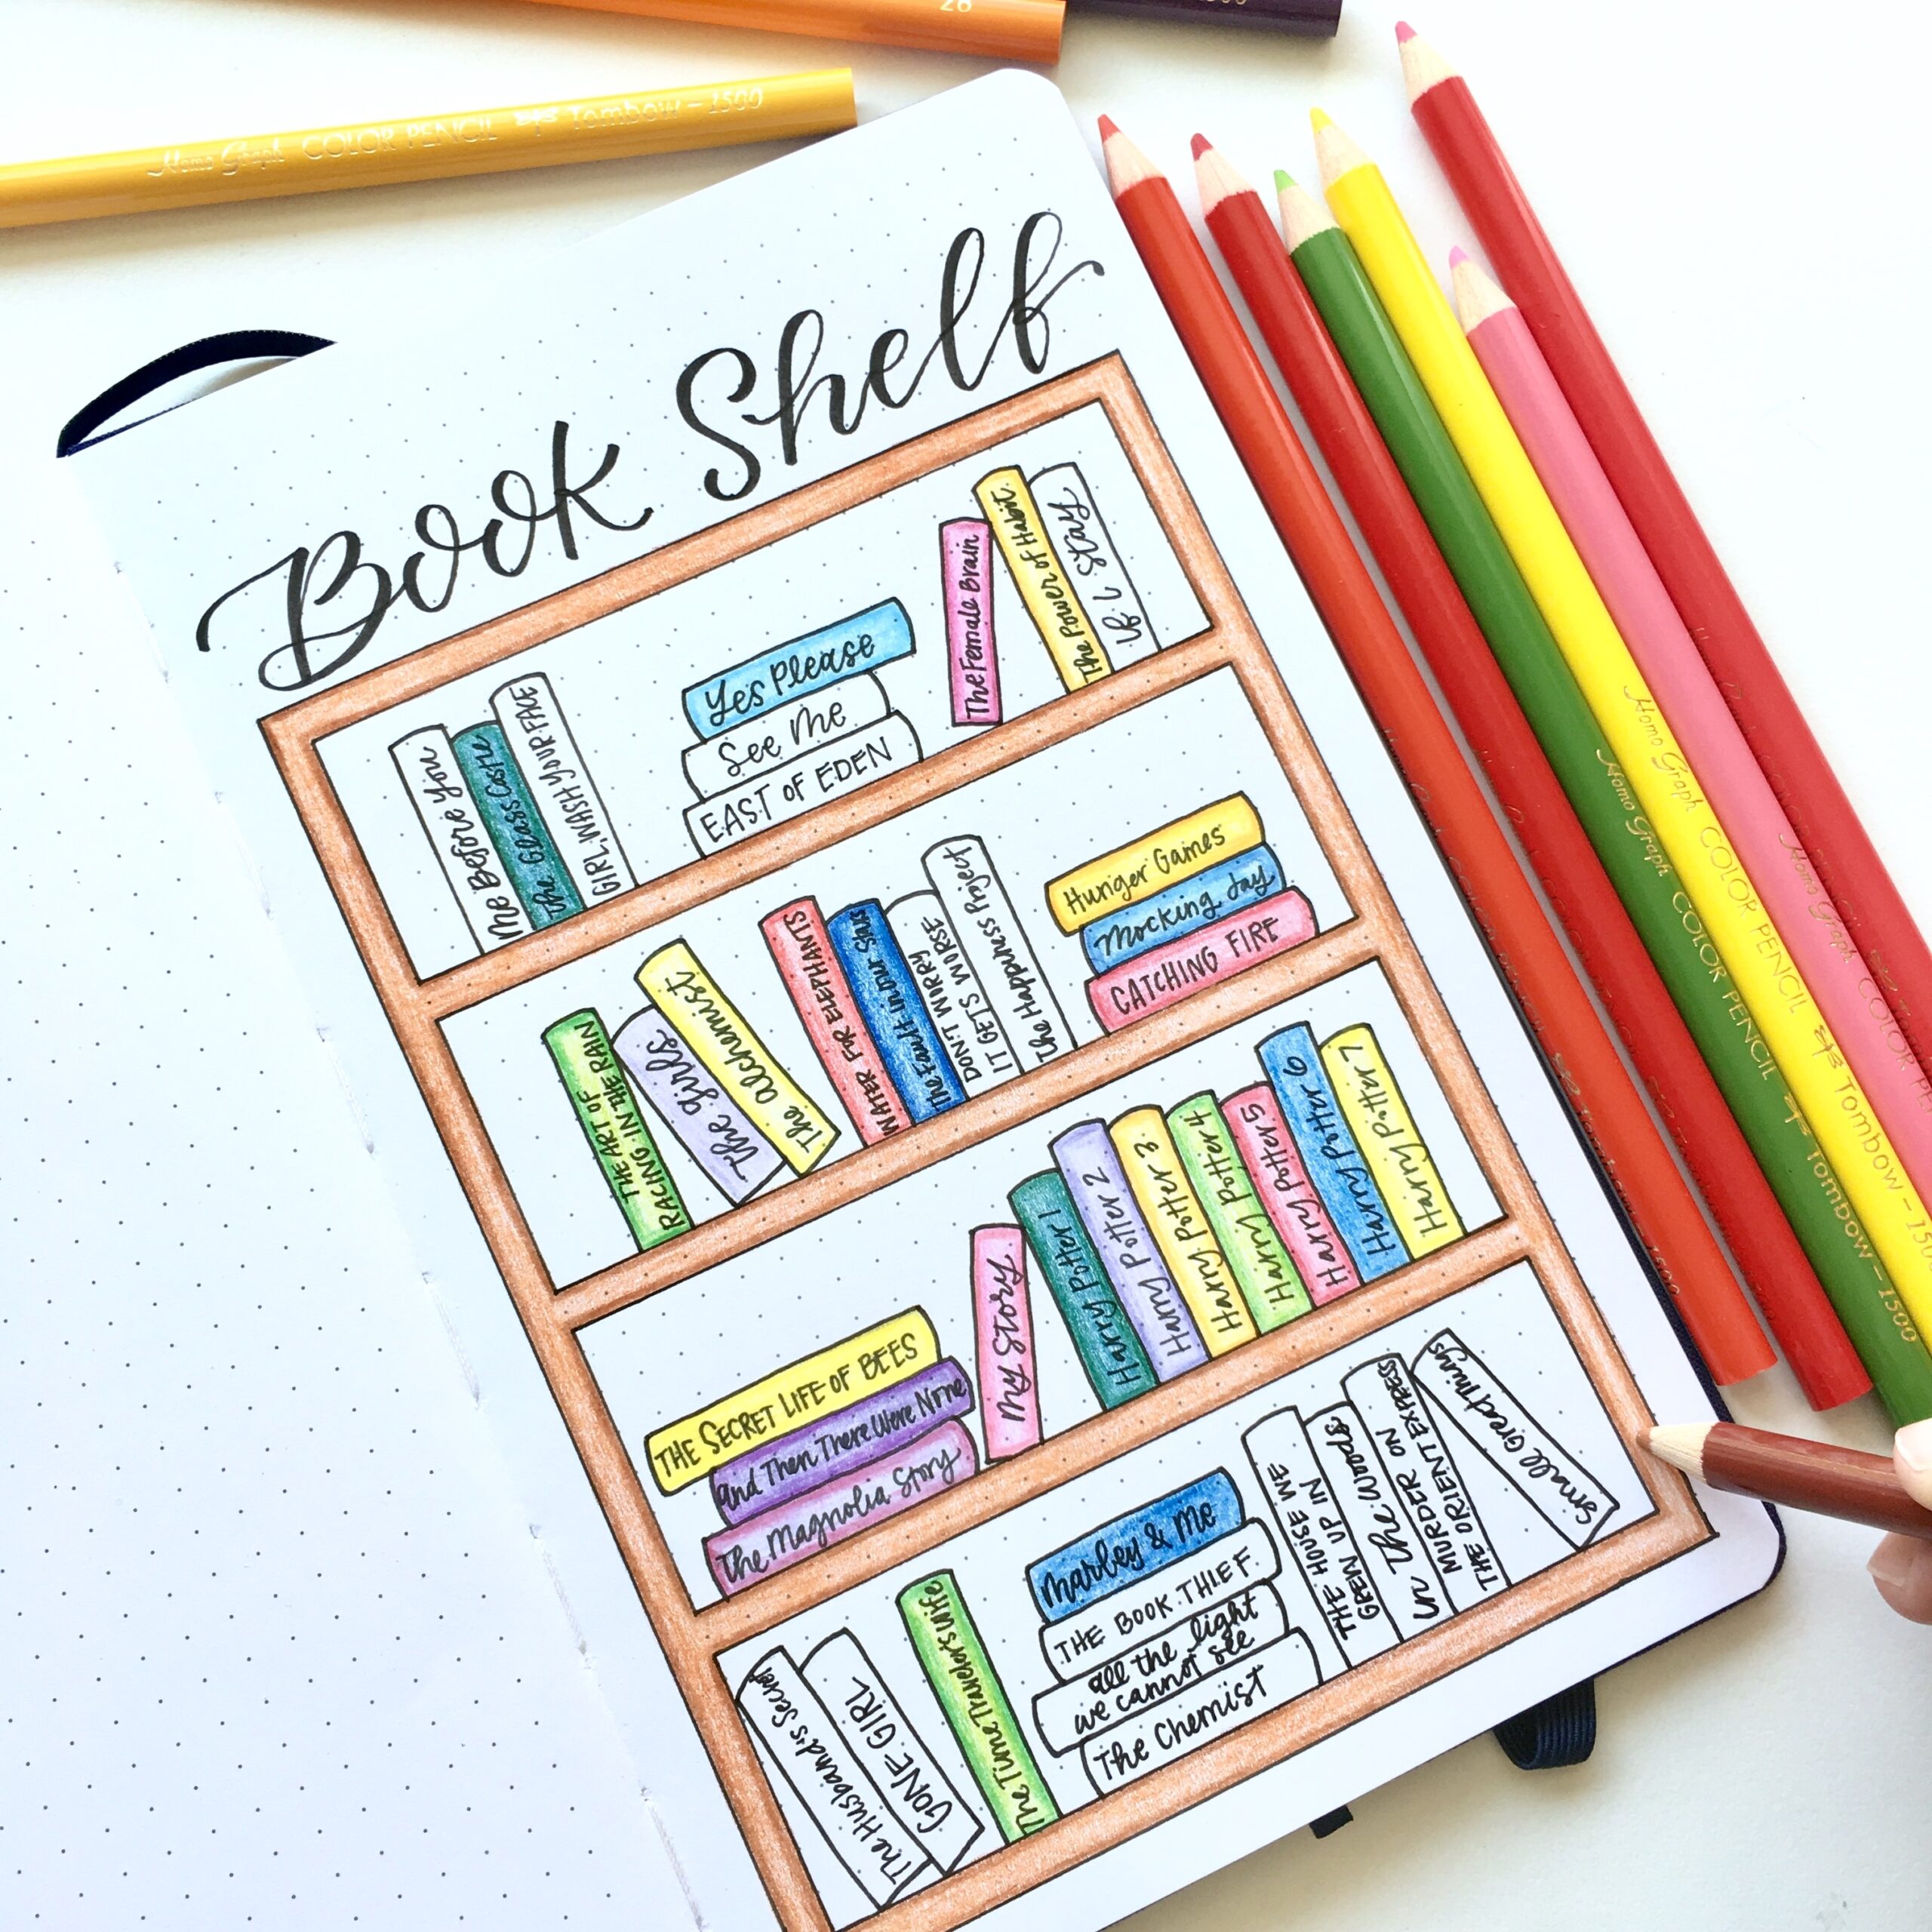 26
1500
Homo Graph COLOR PENCIL Tombow - 1500
Book Shelf
Me Before You
The Glass Castle
GIRL, WASH YOUR FACE
Yes Please
See Me
EAST OF EDEN
The Female Brain
The Power of Habit
If I Stay
THE ART OF
RACING IN THE RAIN
The Girls
The Alchemist
WATER FOR ELEPHANTS
The Fault in our Stars
DON'T WORRY
IT GETS WORSE
The Happiness Project
Hunger Games
Mocking Jay
CATCHING FIRE
THE SECRET LIFE OF BEES
And Then There Were None
The Magnolia Story
My Story
Harry Potter 1
Harry Potter 2
Harry Potter 3
Harry Potter 4
Harry Potter 5
Harry Potter 6
Harry Potter 7
The Husband's Secret
GONE GIRL
The Time Traveler's Wife
Marley & Me
THE BOOK THIEF
all the light
we cannot see
The Chemist
THE HOUSE WE
GREW UP IN
In The Woods
MURDER ON
THE ORIENT EXPRESS
Small Great Things
1500
Homo Graph COLOR PENCIL Tombow - 1500
Homo Graph COLOR PENCIL Tombow - 150
Homo Graph COLOR PE